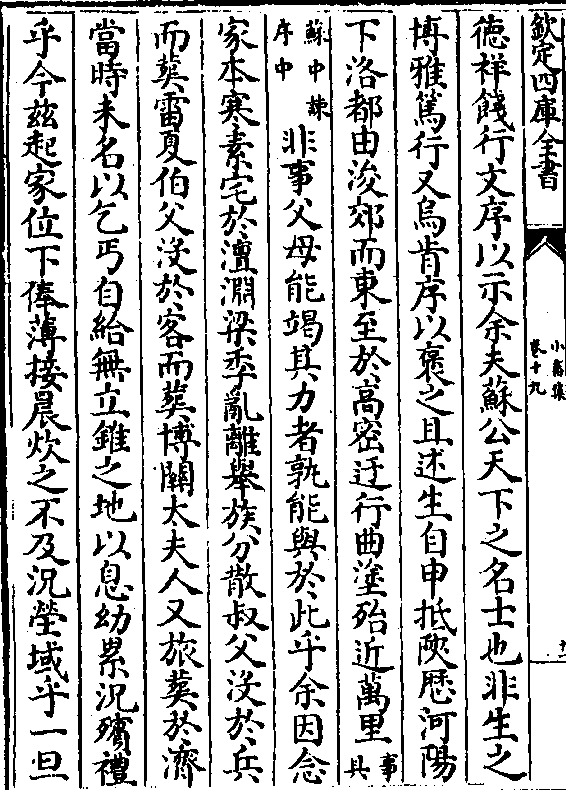 欽定四庫全書
小畜集
卷十九
十
德祥餞行文序以示余夫蘇公天下之名士也非生之
博雅篤行又烏肯序以褒之且述生自申抵陝歷河陽
下洛都由浚郊而東至於高密迂行曲塗殆近萬里事具
蘇中諫序中非事父母能竭其力者孰能與於此乎余因念
家本寒素宅於澶淵梁季亂離舉族分散叔父沒於兵
而葬雷夏伯父沒於客而葬博關太夫人又旅葬於濟
當時未名以乞丐自給無立錐之地以息幼累況殯禮
乎今茲起家位下俸薄接晨炊之不及況塋域乎一旦